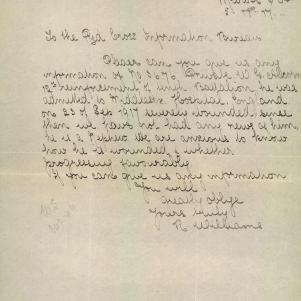 To the Red Cross Information Bureau
Please can you give us any
information of No 3676, Private W. G.
12th reinforcement of Battalion he was
admitted to Hospital Eng and
on 23 of Sep 1917 severely wounded since
then we have not had any news of him,
he is a We are anxious to know
how he is wounded & whether
progressing favourably.
If you can give us any information
You will
greatly oblige
yours truly
R Williams